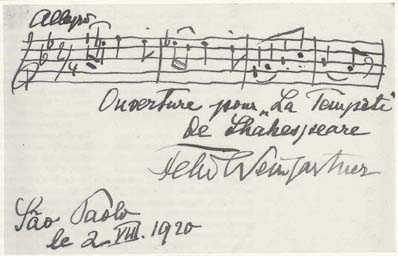 Allegro
Ouverture pour „La Tempête"
de Shakespeare
Felix Weingartner
São Paolo
le 2. VIII. 1920